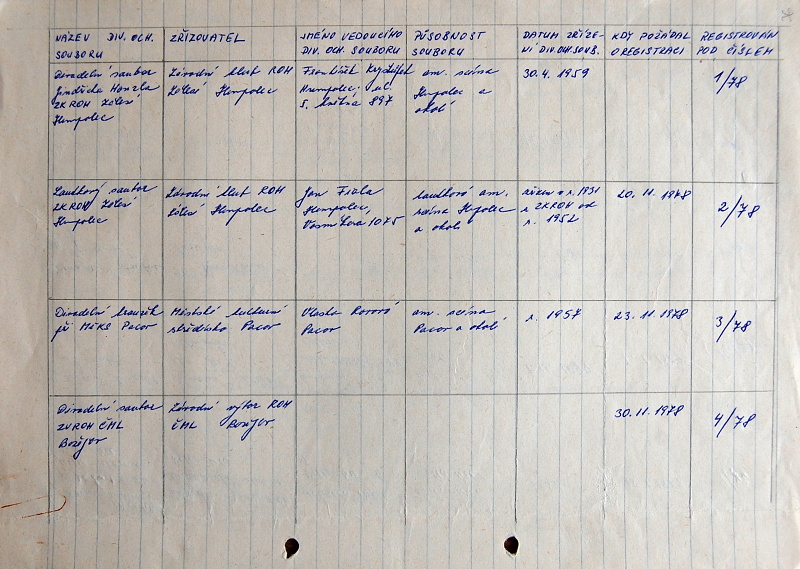 NÁZEV DIV. OCH. SOUBORU
ZŘIZOVATEL
JMÉNO VEDOUCÍHO DIV. OCH. SOUBORU
PŮSOBNOST SOUBORU
DATUM ZŘÍZENÍ DIV. OCH. SOUB.
KDY POŽÁDAL O REGISTRACI
REGISTROVÁN POD ČÍSLEM
Divadelní soubor
Jindřicha Honzla
ZK ROH
Humpolec
Závodní klub ROH
Humpolec
František
Humpolec, ul.
5. května 897
am. scéna
Humpolec a
okolí
30.4. 1959
1/78
Loutkový soubor
ZK ROH
Humpolec
Závodní klub ROH
Humpolec
Jan Fiala
Humpolec,
1075
loutková am.
scéna Humpolec
a okolí
r. 1931
ZKROH od
r. 1952
20. 11. 1978
2/78
Divadelní kroužek
při MěKS Pacov
Městské kulturní
středisko Pacov
Vlasta
Pacov
am. scéna
Pacov a okolí
r. 1957
23. 11. 1978
3/78
Divadelní soubor
ZV ROH ČML
Božejov
Závodní výbor ROH
ČML Božejov
30. 11. 1978
4/78